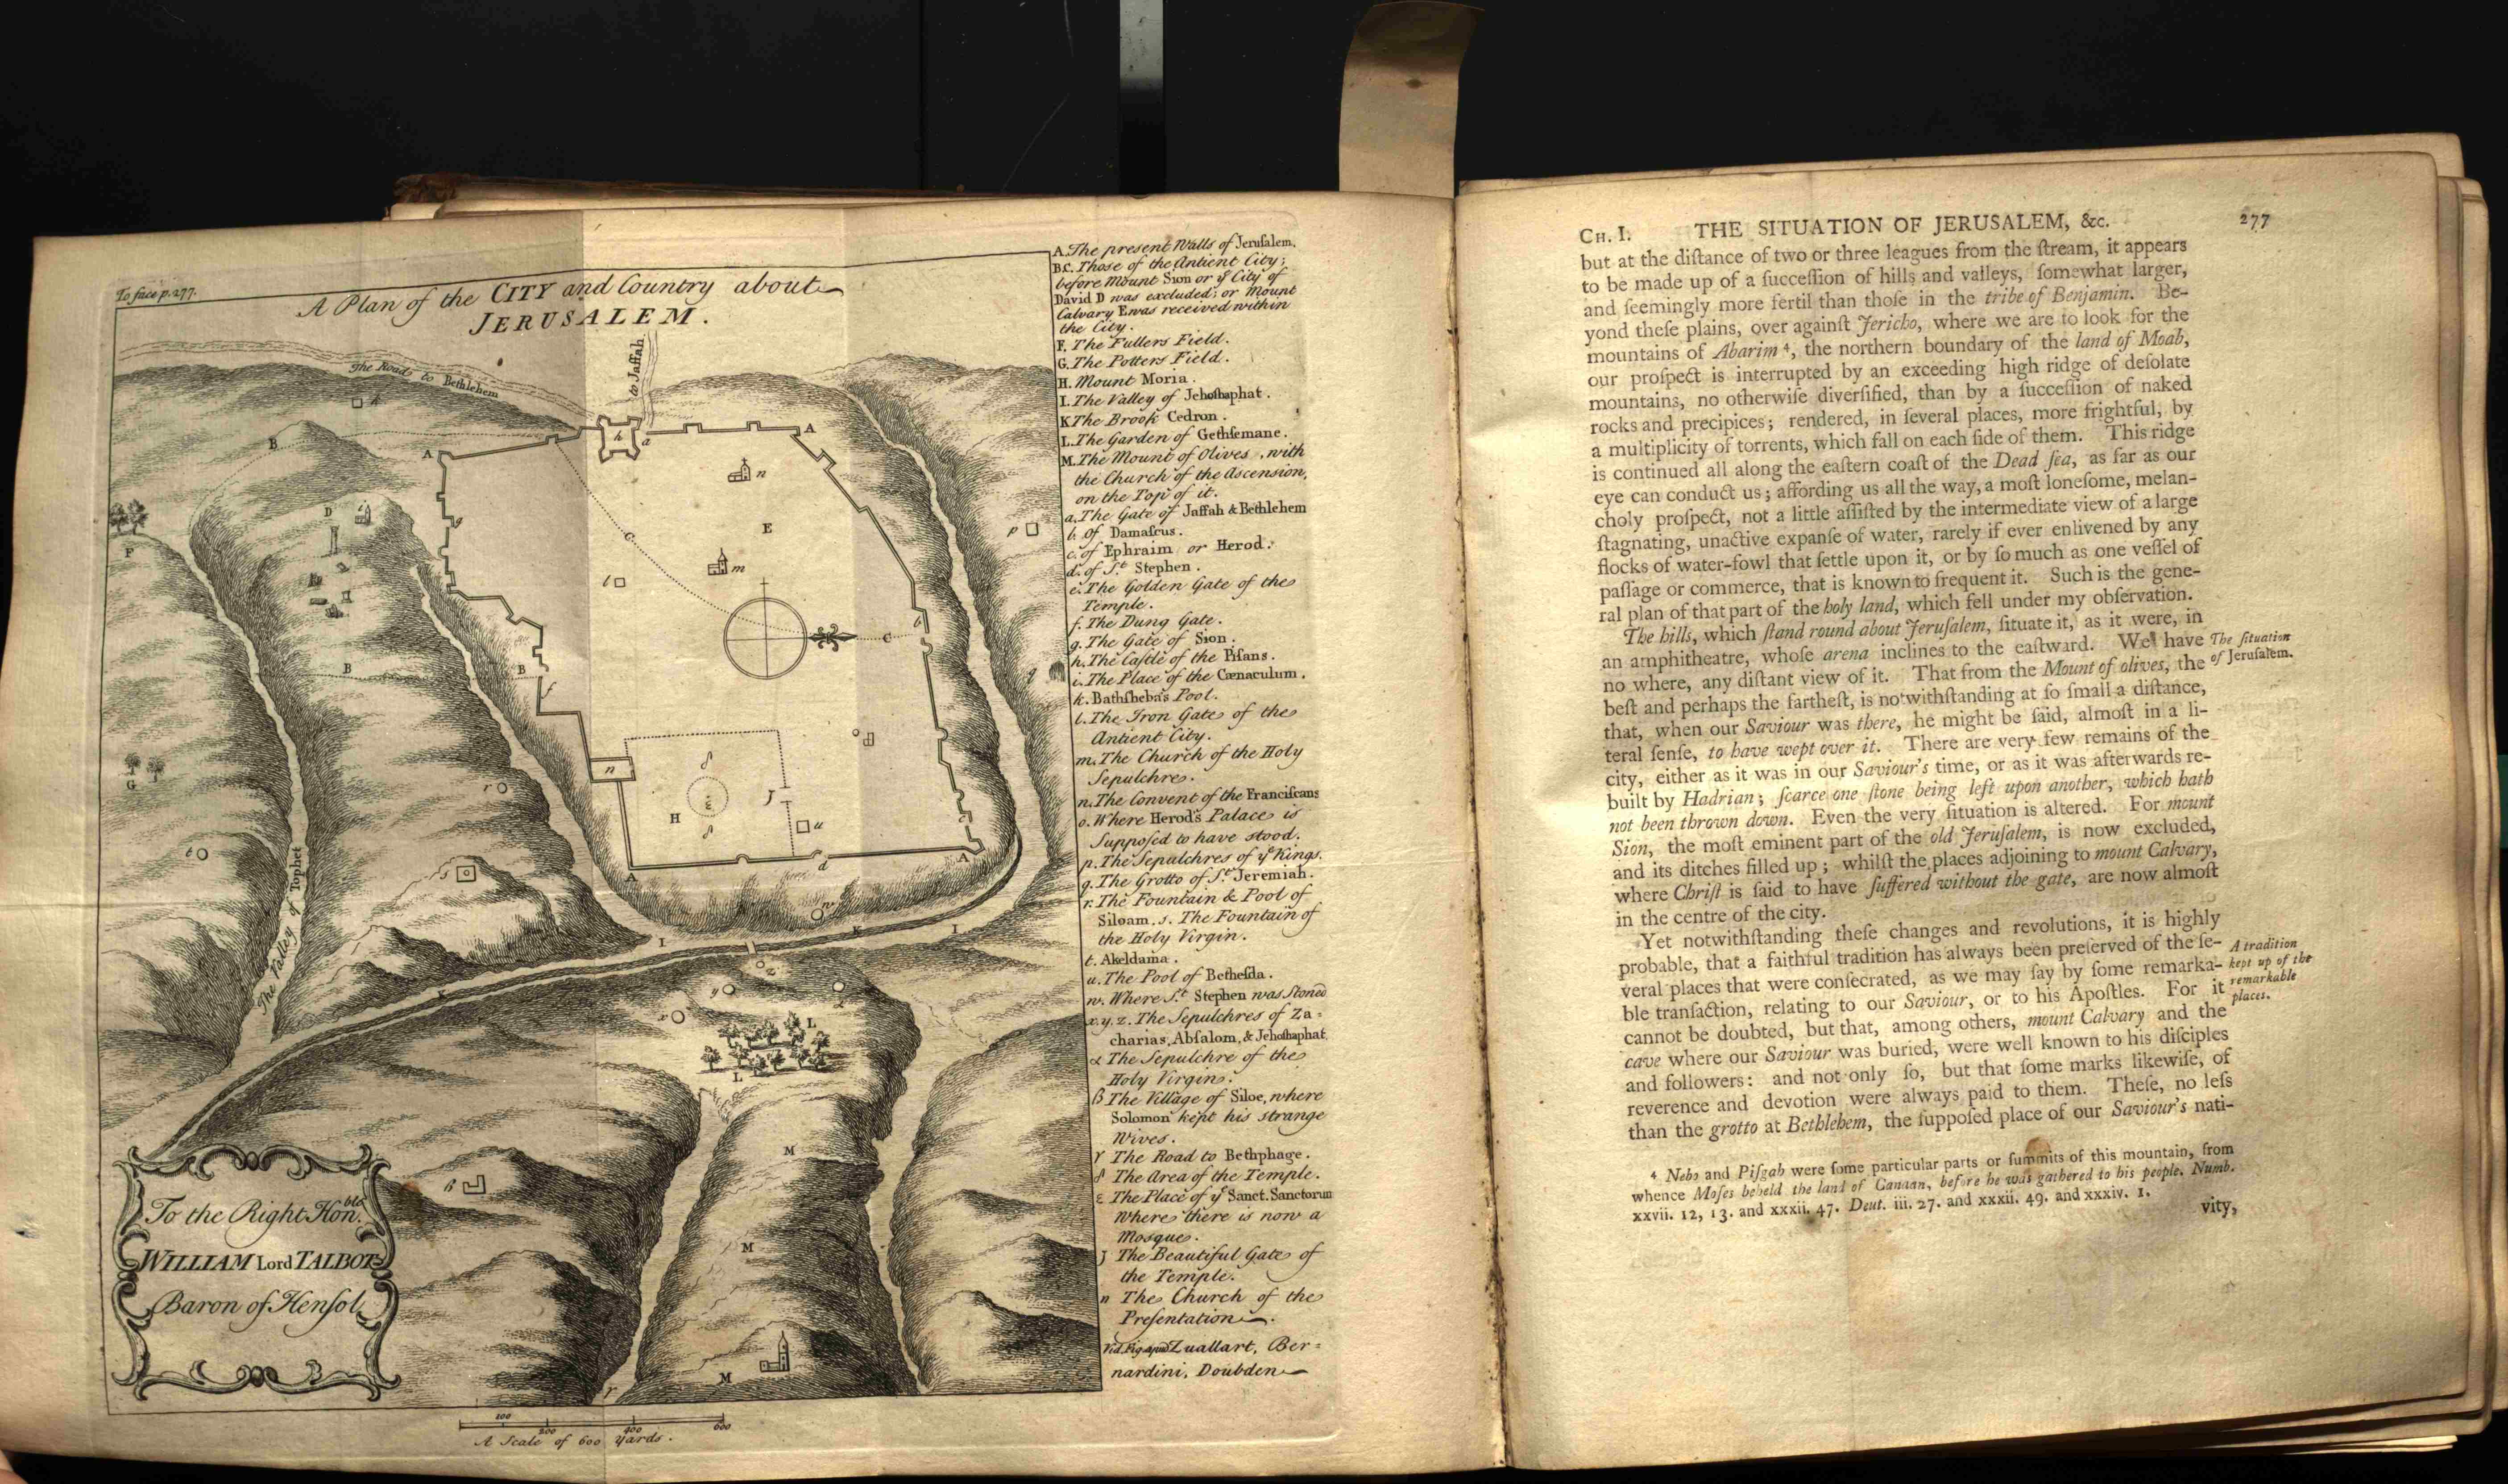 To face p. 277.
A Plan of the CITY and Country about
JERUSALEM.
The Road to Bethlehem
to Jaffah
The Valley of Tophet
To the Right Hon.ble
WILLIAM Lord TALBOT
Baron of Henſol
100 200 400 600
A Scale of 600 Yards.
A. The present Walls of Jeruſalem.
B.C. Those of the Antient City;
before Mount Sion or yͤ City of
David D was excluded; or Mount
Calvary E was received within
the City.
F. The Fullers Field.
G. The Potters Field.
H. Mount Moria.
I. The Valley of Jehoſhaphat.
K The Brook Cedron.
L. The Garden of Gethſemane.
M. The Mount of Olives, with
the Church of the Ascension,
on the Top of it.
a. The Gate of Jaffah & Bethlehem
b. of Damaſcus.
c. of Ephraim or Herod.
d. of S.t Stephen.
e. The Golden Gate of the
Temple.
f. The Dung Gate.
g. The Gate of Sion.
h. The Caſtle of the Piſans.
i. The Place of the Cœnaculum.
k. Bathſheba's Pool.
l. The Iron Gate of the
Antient City.
m. The Church of the Holy
Sepulchre.
n. The Convent of the Franciſcans
o. Where Herod's Palace is
Supposed to have stood.
p. The Sepulchres of yͤ Kings.
q. The Grotto of S.t Jeremiah.
r. The Fountain & Pool of
Siloam. s. The Fountain of
the Holy Virgin.
t. Akeldama.
u. The Pool of Betheſda.
w. Where S.t Stephen was Stoned
x. y. z. The Sepulchres of Za=
charias, Abſalom, & Jehoſhaphat.
α The Sepulchre of the
Holy Virgin.
β The Village of Siloe, where
Solomon kept his strange
Wives.
γ The Road to Bethphage.
δ The Area of the Temple.
ε The Place of yͤ Sanct. Sanctorum
Where there is now a
Mosque.
J The Beautiful Gate of
the Temple.
n The Church of the
Preſentation.
Vid. Fig. apud Zuallart, Ber=
nardini, Doubden
CH. I. THE SITUATION OF JERUSALEM, &c. 277
but at the diſtance of two or three leagues from the ſtream, it appears
to be made up of a ſucceſſion of hills and valleys, ſomewhat larger,
and ſeemingly more fertil than thoſe in the tribe of Benjamin. Be-
yond theſe plains, over againſt Jericho, where we are to look for the
mountains of Abarim ⁴, the northern boundary of the land of Moab,
our proſpect is interrupted by an exceeding high ridge of deſolate
mountains, no otherwiſe diverſified, than by a ſucceſſion of naked
rocks and precipices; rendered, in ſeveral places, more frightful, by
a multiplicity of torrents, which fall on each ſide of them. This ridge
is continued all along the eaſtern coaſt of the Dead ſea, as far as our
eye can conduct us; affording us all the way, a moſt loneſome, melan-
choly proſpect, not a little aſſiſted by the intermediate view of a large
ſtagnating, unactive expanſe of water, rarely if ever enlivened by any
flocks of water-fowl that ſettle upon it, or by ſo much as one veſſel of
paſſage or commerce, that is known to frequent it. Such is the gene-
ral plan of that part of the holy land, which fell under my obſervation.
The hills, which ſtand round about Jeruſalem, ſituate it, as it were, in
an amphitheatre, whoſe arena inclines to the eaſtward. We have
no where, any diſtant view of it. That from the Mount of olives, the
The ſituation
of Jeruſalem.
beſt and perhaps the fartheſt, is notwithſtanding at ſo ſmall a diſtance,
that, when our Saviour was there, he might be ſaid, almoſt in a li-
teral ſenſe, to have wept over it. There are very few remains of the
city, either as it was in our Saviour's time, or as it was afterwards re-
built by Hadrian; ſcarce one ſtone being left upon another, which hath
not been thrown down. Even the very ſituation is altered. For mount
Sion, the moſt eminent part of the old Jeruſalem, is now excluded,
and its ditches filled up; whilſt the places adjoining to mount Calvary,
where Chriſt is ſaid to have ſuffered without the gate, are now almoſt
in the centre of the city.
Yet notwithſtanding theſe changes and revolutions, it is highly
probable, that a faithful tradition has always been preſerved of the ſe-
veral places that were conſecrated, as we may ſay by ſome remarka-
ble tranſaction, relating to our Saviour, or to his Apoſtles. For it
A tradition
kept up of the
remarkable
places.
cannot be doubted, but that, among others, mount Calvary and the
cave where our Saviour was buried, were well known to his diſciples
and followers: and not only ſo, but that ſome marks likewiſe, of
reverence and devotion were always paid to them. Theſe, no leſs
than the grotto at Bethlehem, the ſuppoſed place of our Saviour's nati-
⁴ Nebo and Piſgah were ſome particular parts or ſummits of this mountain, from
whence Moſes beheld the land of Canaan, before he was gathered to his people. Numb.
xxvii. 12, 13. and xxxii. 47. Deut. iii. 27. and xxxii. 49. and xxxiv. 1.
vity,